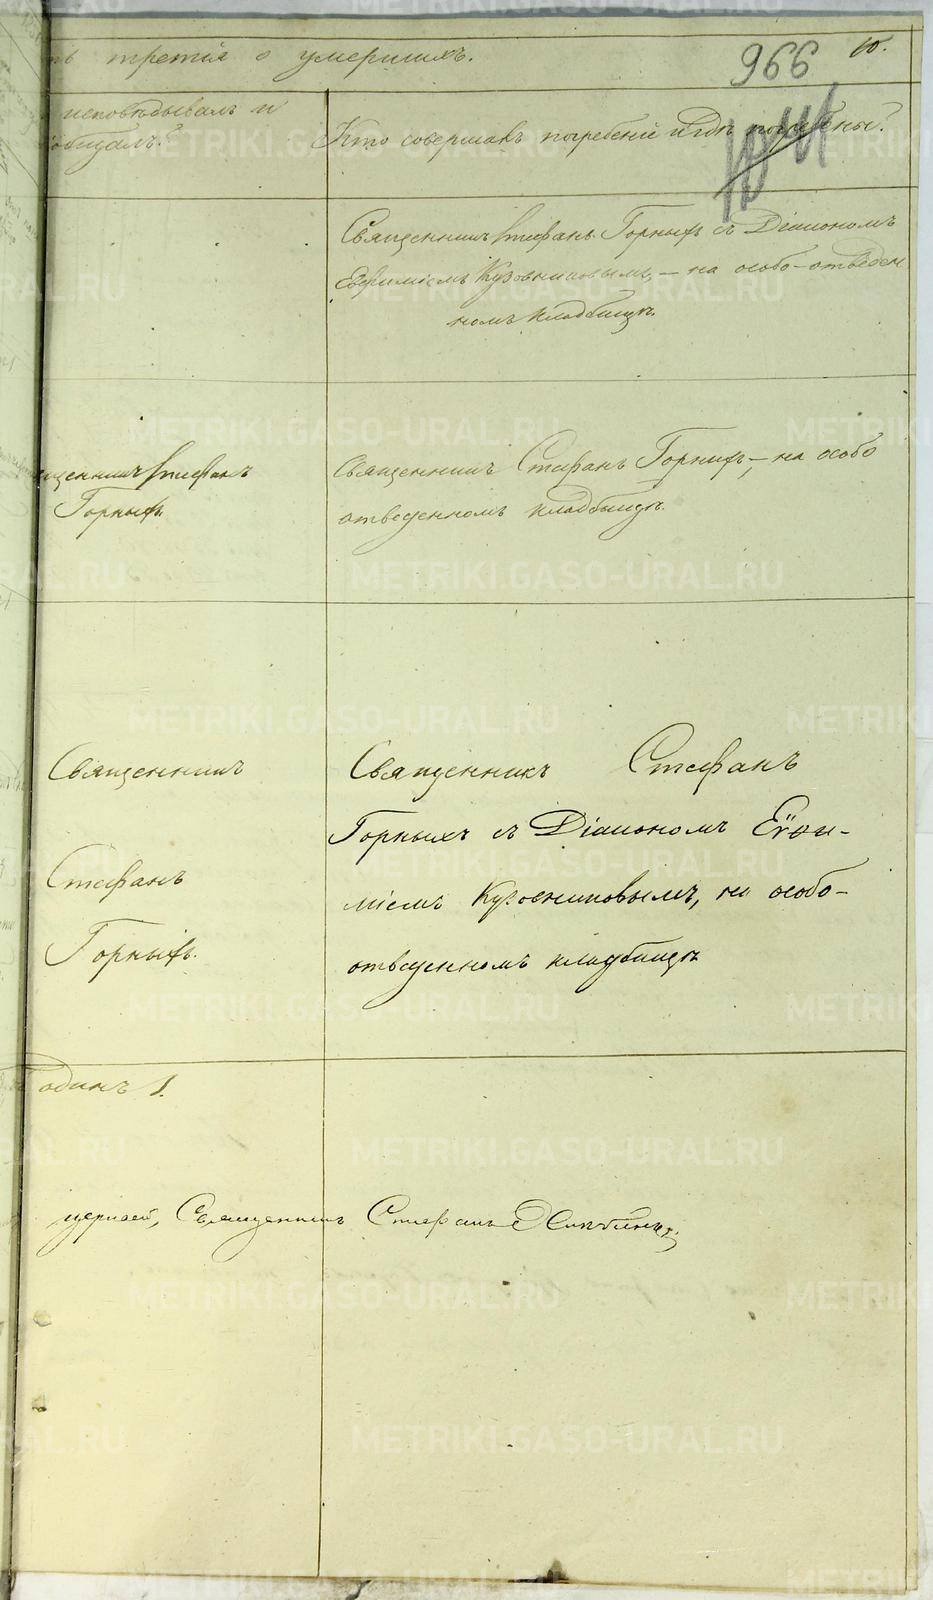 ть третія о умершихъ.
966
10.
исповѣдывалъ и
общалъ?
Кто совершалъ погребеніе и гдѣ погребены?
Священникъ Стефанъ Горныхъ съ Діакономъ
Евѳиміемъ Кузовниковымъ, — на особо-отведен
номъ кладбищѣ.
щенникъ Стефанъ
Горныхъ.
Священникъ Стефанъ Горныхъ, — на особо
отведенномъ кладбищѣ.
Священникъ
Стефанъ
Горныхъ.
Священникъ Стефанъ
Горныхъ съ Діакономъ Еѵѳи-
міемъ Кузовниковымъ, на особо-
отведенномъ кладбищѣ
одинъ 1.
церквей, Священникъ Стефанъ
METRIKI.GASO-URAL.RU